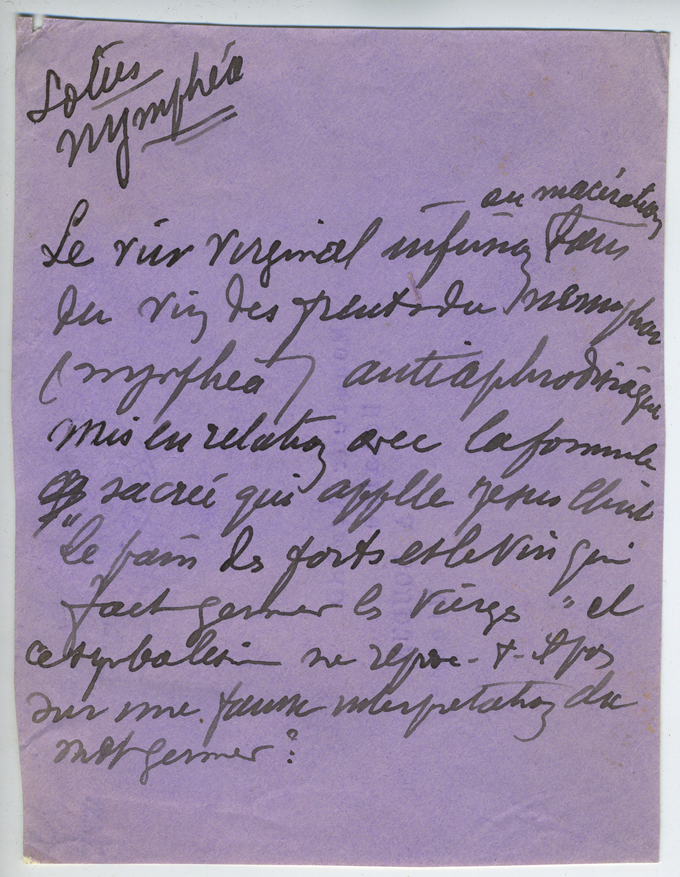 Lotus
Nymphéa
ou macération
Le vin virginal infusion dans
du vin des fruits du nenuphar
(nymphéa) antiaphrodisiaque
mis en relation avec la formule
sacrée qui applle Jesus Christ
"Le pain des forts et le vin qui
fait germer les vierges" et
ce symbolisme ne repose-t-il pas
sur une fausse interpretation du
mot germer?